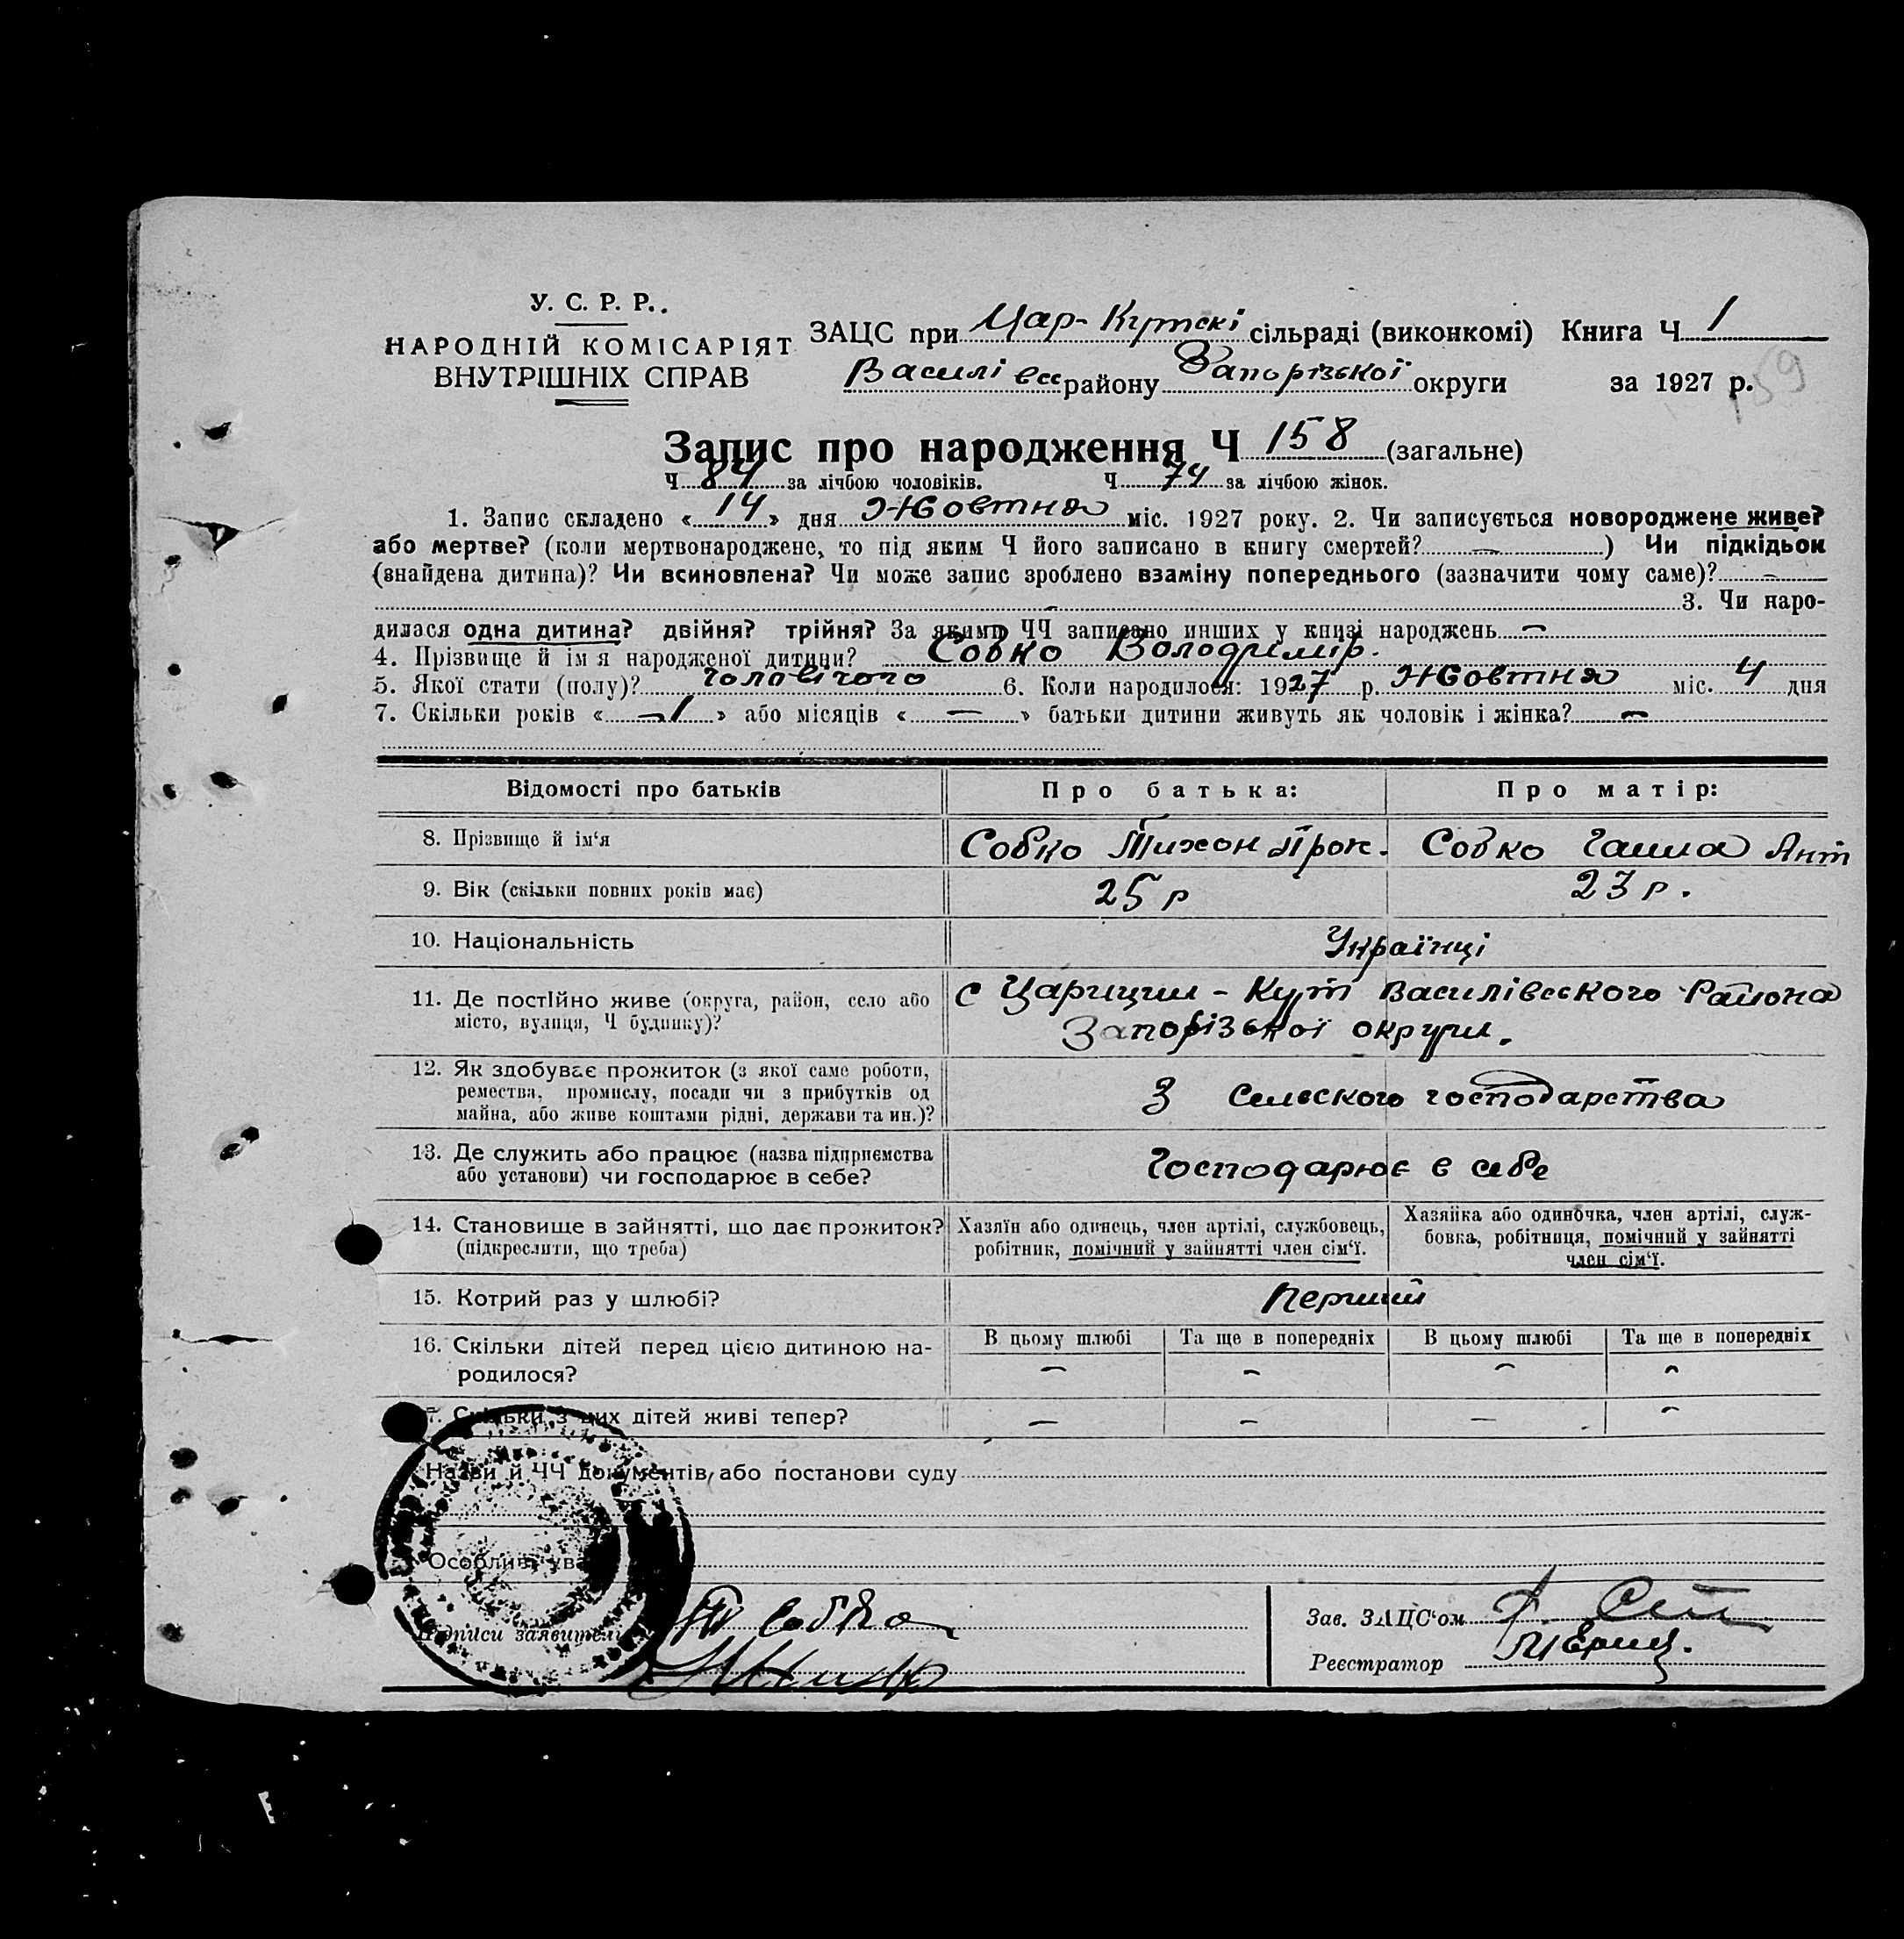 У. С. Р. Р.
НАРОДНІЙ КОМІСАРІЯТ
ВНУТРІШНІХ СПРАВ
ЗАЦС при Цар-Кутскі сільраді (виконкомі) Книга Ч 1
Василівсс району Запорізької округи за 1927 р.
159
Запис про народження Ч 158 (загальне)
Ч 84 за лічбою чоловіків. Ч 74 за лічбою жінок.
1. Запис складено « 14 » дня Жовтня міс. 1927 року. 2. Чи записується новороджене живе?
або мертве? (коли мертвонароджене, то під яким Ч його записано в книгу смертей? — ) Чи підкідьок
(знайдена дитина)? Чи всиновлена? Чи може запис зроблено взаміну попереднього (зазначити чому саме)? —
— 3. Чи наро-
дилася одна дитина? двійня? трійня? За якими ЧЧ записано инших у книзі народжень —
4. Прізвище й ім я народженої дитини? Собко Володимір.
5. Якої стати (полу)? чоловічого 6. Коли народилося: 1927 р. Жовтня міс. 4 дня
7. Скільки років « 1 » або місяців « — » батьки дитини живуть як чоловік і жінка? —
Відомості про батьків Про батька: Про матір:
8. Прізвище й ім‘я Собко Тихон Прок. Собко Ганна Ант
9. Вік (скільки повних років має) 25 р 23 р.
10. Національність Українці
11. Де постійно живе (округа, район, село або
місто, вулиця, Ч будинку)?
с Царицин - Кут Василівського Района
Запорізької округи.
12. Як здобуває прожиток (з якої саме роботи,
ремества, промислу, посади чи з прибутків од
майна, або живе коштами рідні, держави та ин.)?
З Сельского господарства
13. Де служить або працює (назва підприємства
або установи) чи господарює в себе?
Господарює в себе
14. Становище в зайнятті, що дає прожиток?
(підкреслити, що треба)
Хазяїн або одинець, член артілі, службовець,
робітник, помічний у зайнятті член сім‘ї.
Хазяйка або одиночка, член артілі, служ-
бовка, робітниця, помічний у зайнятті
член сім‘ї.
15. Котрий раз у шлюбі? Перший
16. Скільки дітей перед цією дитиною на-
родилося?
В цьому шлюбі Та ще в попередніх В цьому шлюбі Та ще в попередніх
— — — —
7. Скільки з цих дітей живі тепер? — — — —
Назви й ЧЧ документів або постанови суду
Особливі ува
Підписи заявителів Собко
Зав. ЗАЦС‘ом
Реєстратор